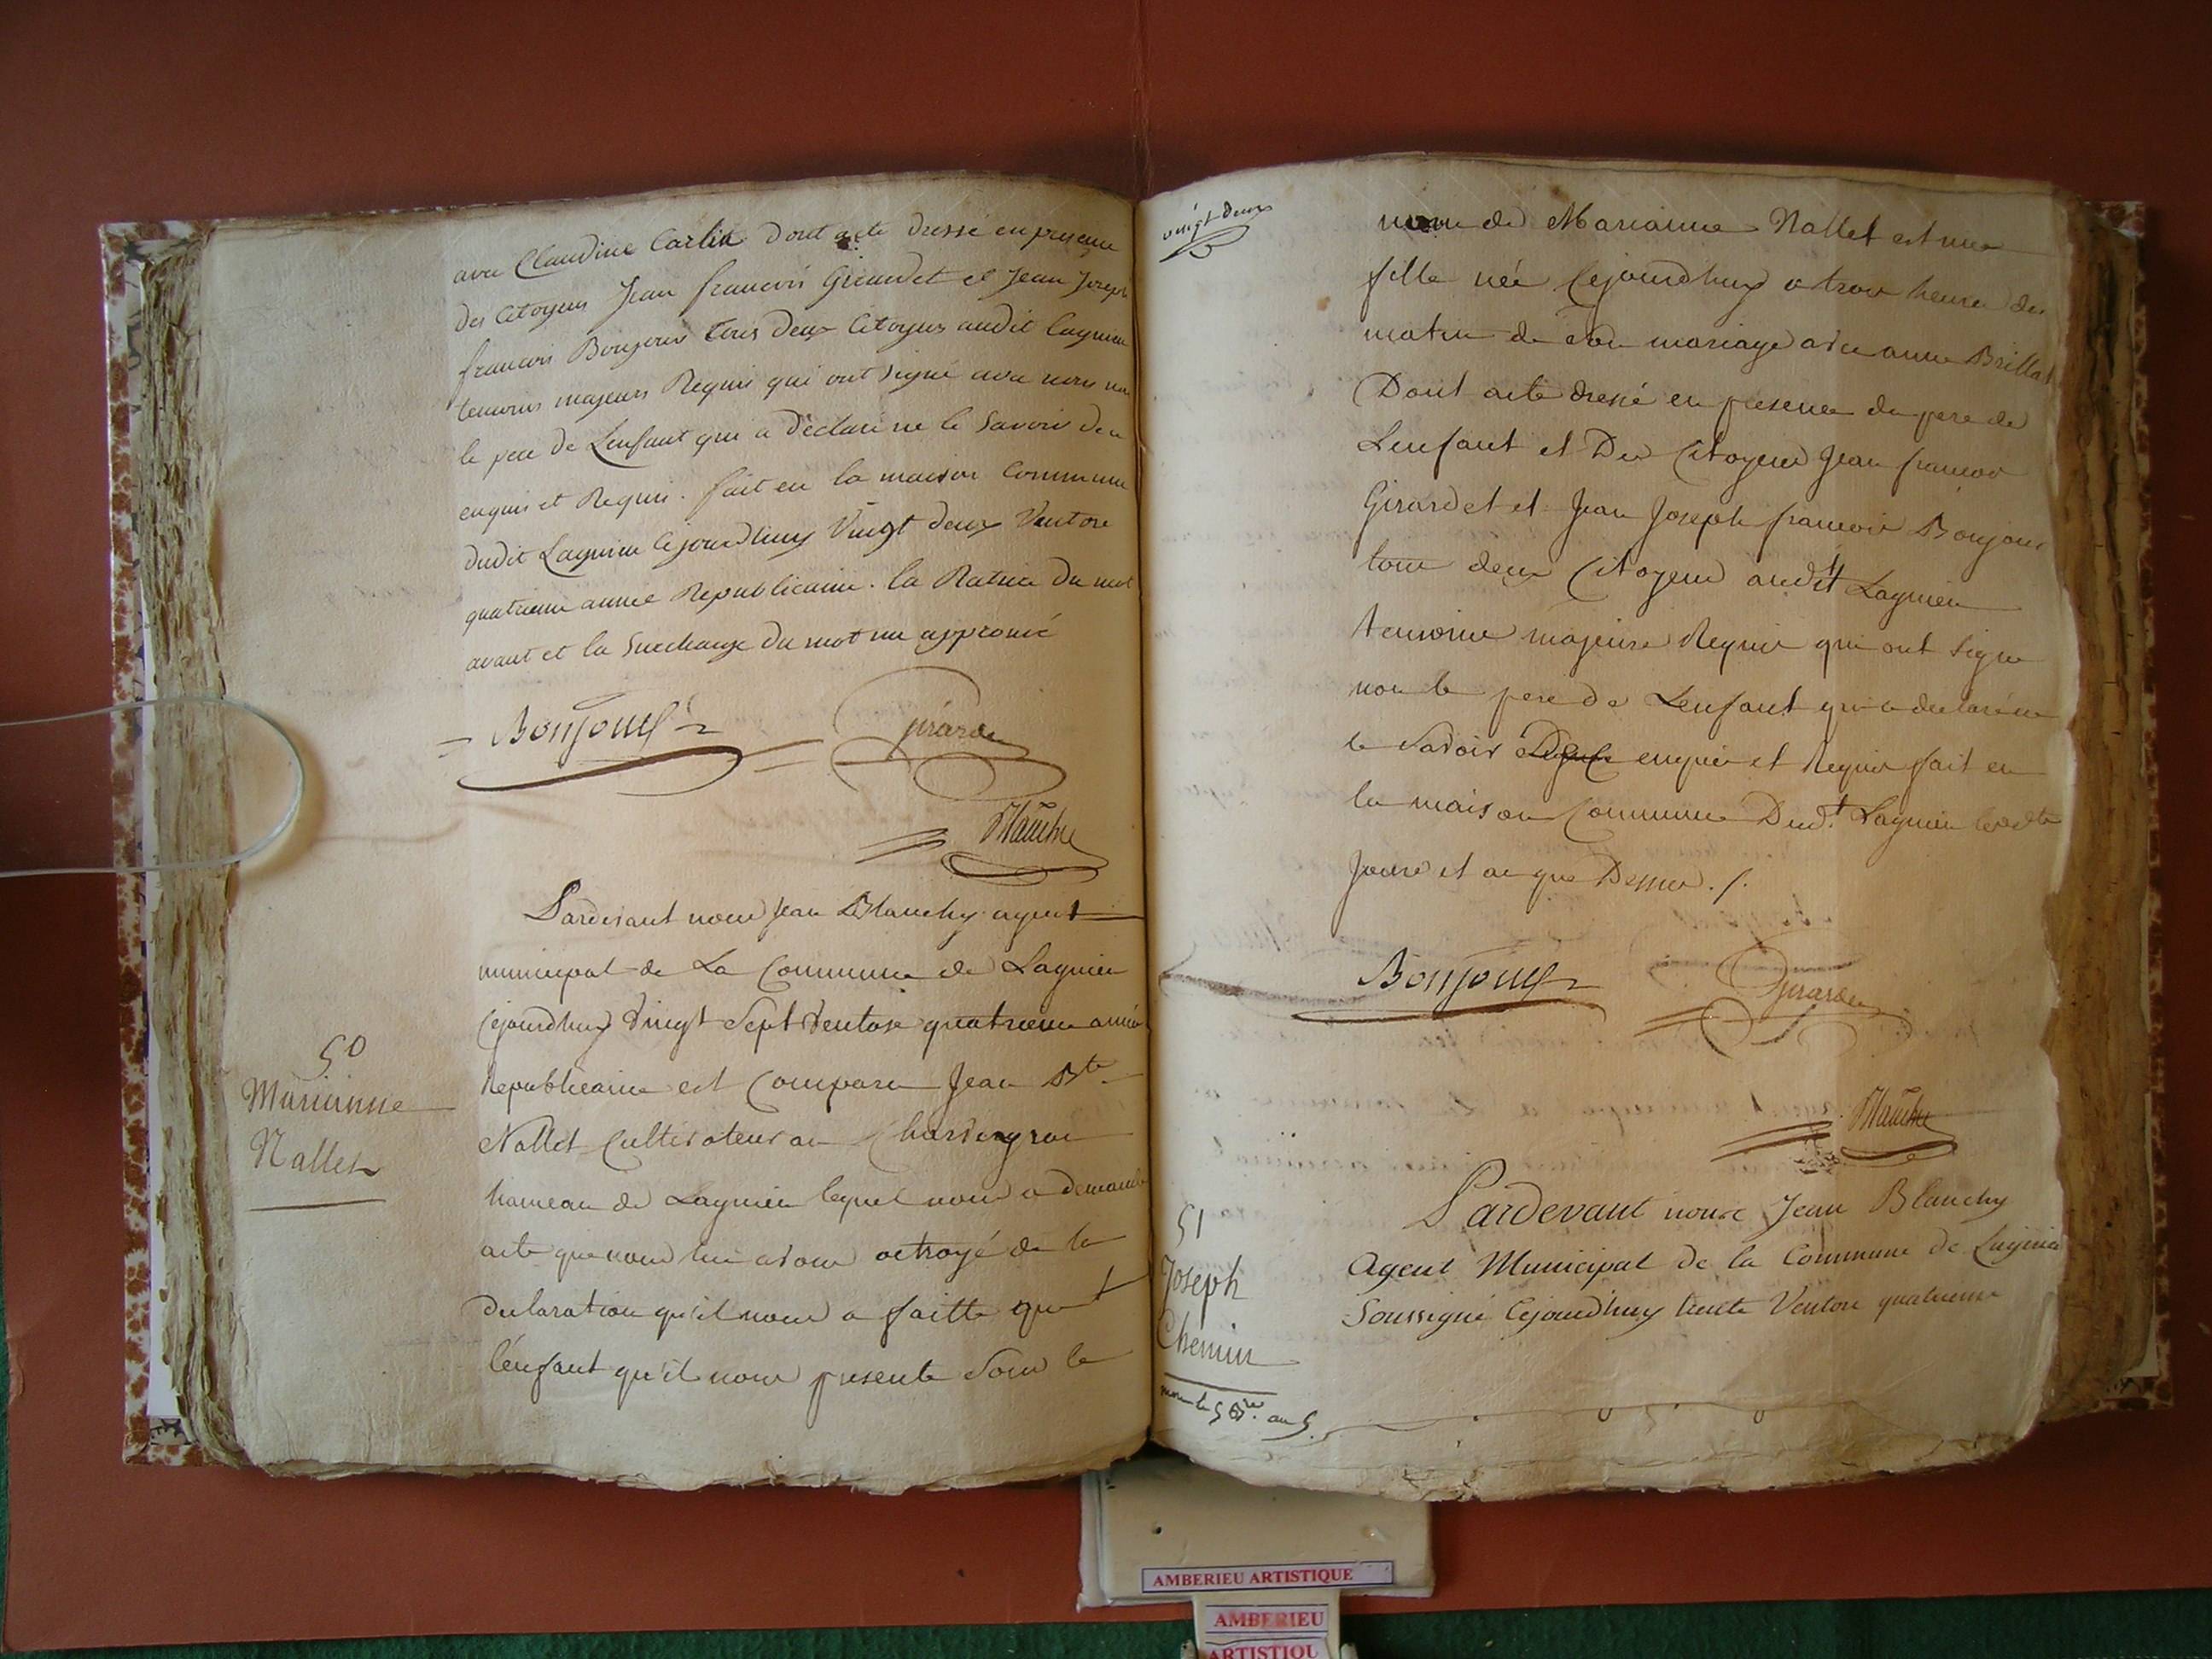 avec Claudine Carlin dont acte dressé en presence
des Citoyens Jean francois Girardet et Jean Joseph
francois Bonjour tous deux Citoyens audit Lagnieu
temoins majeurs Requis qui ont signé avec nous non
le pere de Lenfant qui a déclaré ne le savoir de ce
enquis et Requis. fait en la maison Commune
dudit Lagnieu Cejourdhuy Vingt deux Ventose
quatrieme année Republicaine. la Rature du mot
avant et la Surcharge du mot un approuvé
Bonjour
Girardet
Blanchy
50
Marianne
Nallet
Pardevant nous Jean Blanchy agent
municipal de La Commune de Lagnieu
Cejourdhuy Vingt Sept Ventose quatrieme année
Republicaine est Comparu Jean Bte
Nallet Cultivateur au
hameau de Lagnieu lequel nous a demandé
acte que nous lui avons octroyé de la
declaration qu'il nous a faitte que
l'enfant qu'il nous presente Sous le
vingt deux
nom de Marianne Nallet est une
fille née Cejourdhuy a trois heures du
matin de son mariage avec anne Brillat
Dont acte dressé en presence du pere de
Lenfant et Des Citoyens Jean francois
Girardet et Jean Joseph francois Bonjour
tous deux Citoyens audit Lagnieu
temoins majeurs Requis qui ont signé
non le pere de Lenfant qui a declaré ne
le savoir enquis et Requis fait en
la maison Commune Dudt. Lagnieu lesdts
Jours et an que Dessus ./.
Bonjour
Girardet
Blanchy
51
Joseph
Chemin
Pardevant nous Jean Blanchy
Agent Municipal de la Commune de Lagnieu
Soussigné Cejourd'huy trente Ventose quatrieme
AMBERIEU ARTISTIQUE
AMBERIEU
ARTISTIQU